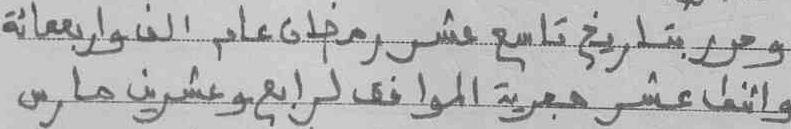 وحرر بتاريخ تاسع عشر رمضان عام الف واربعمائة
واثنا عشر هجرية الموافق لرابع وعشرين مارس